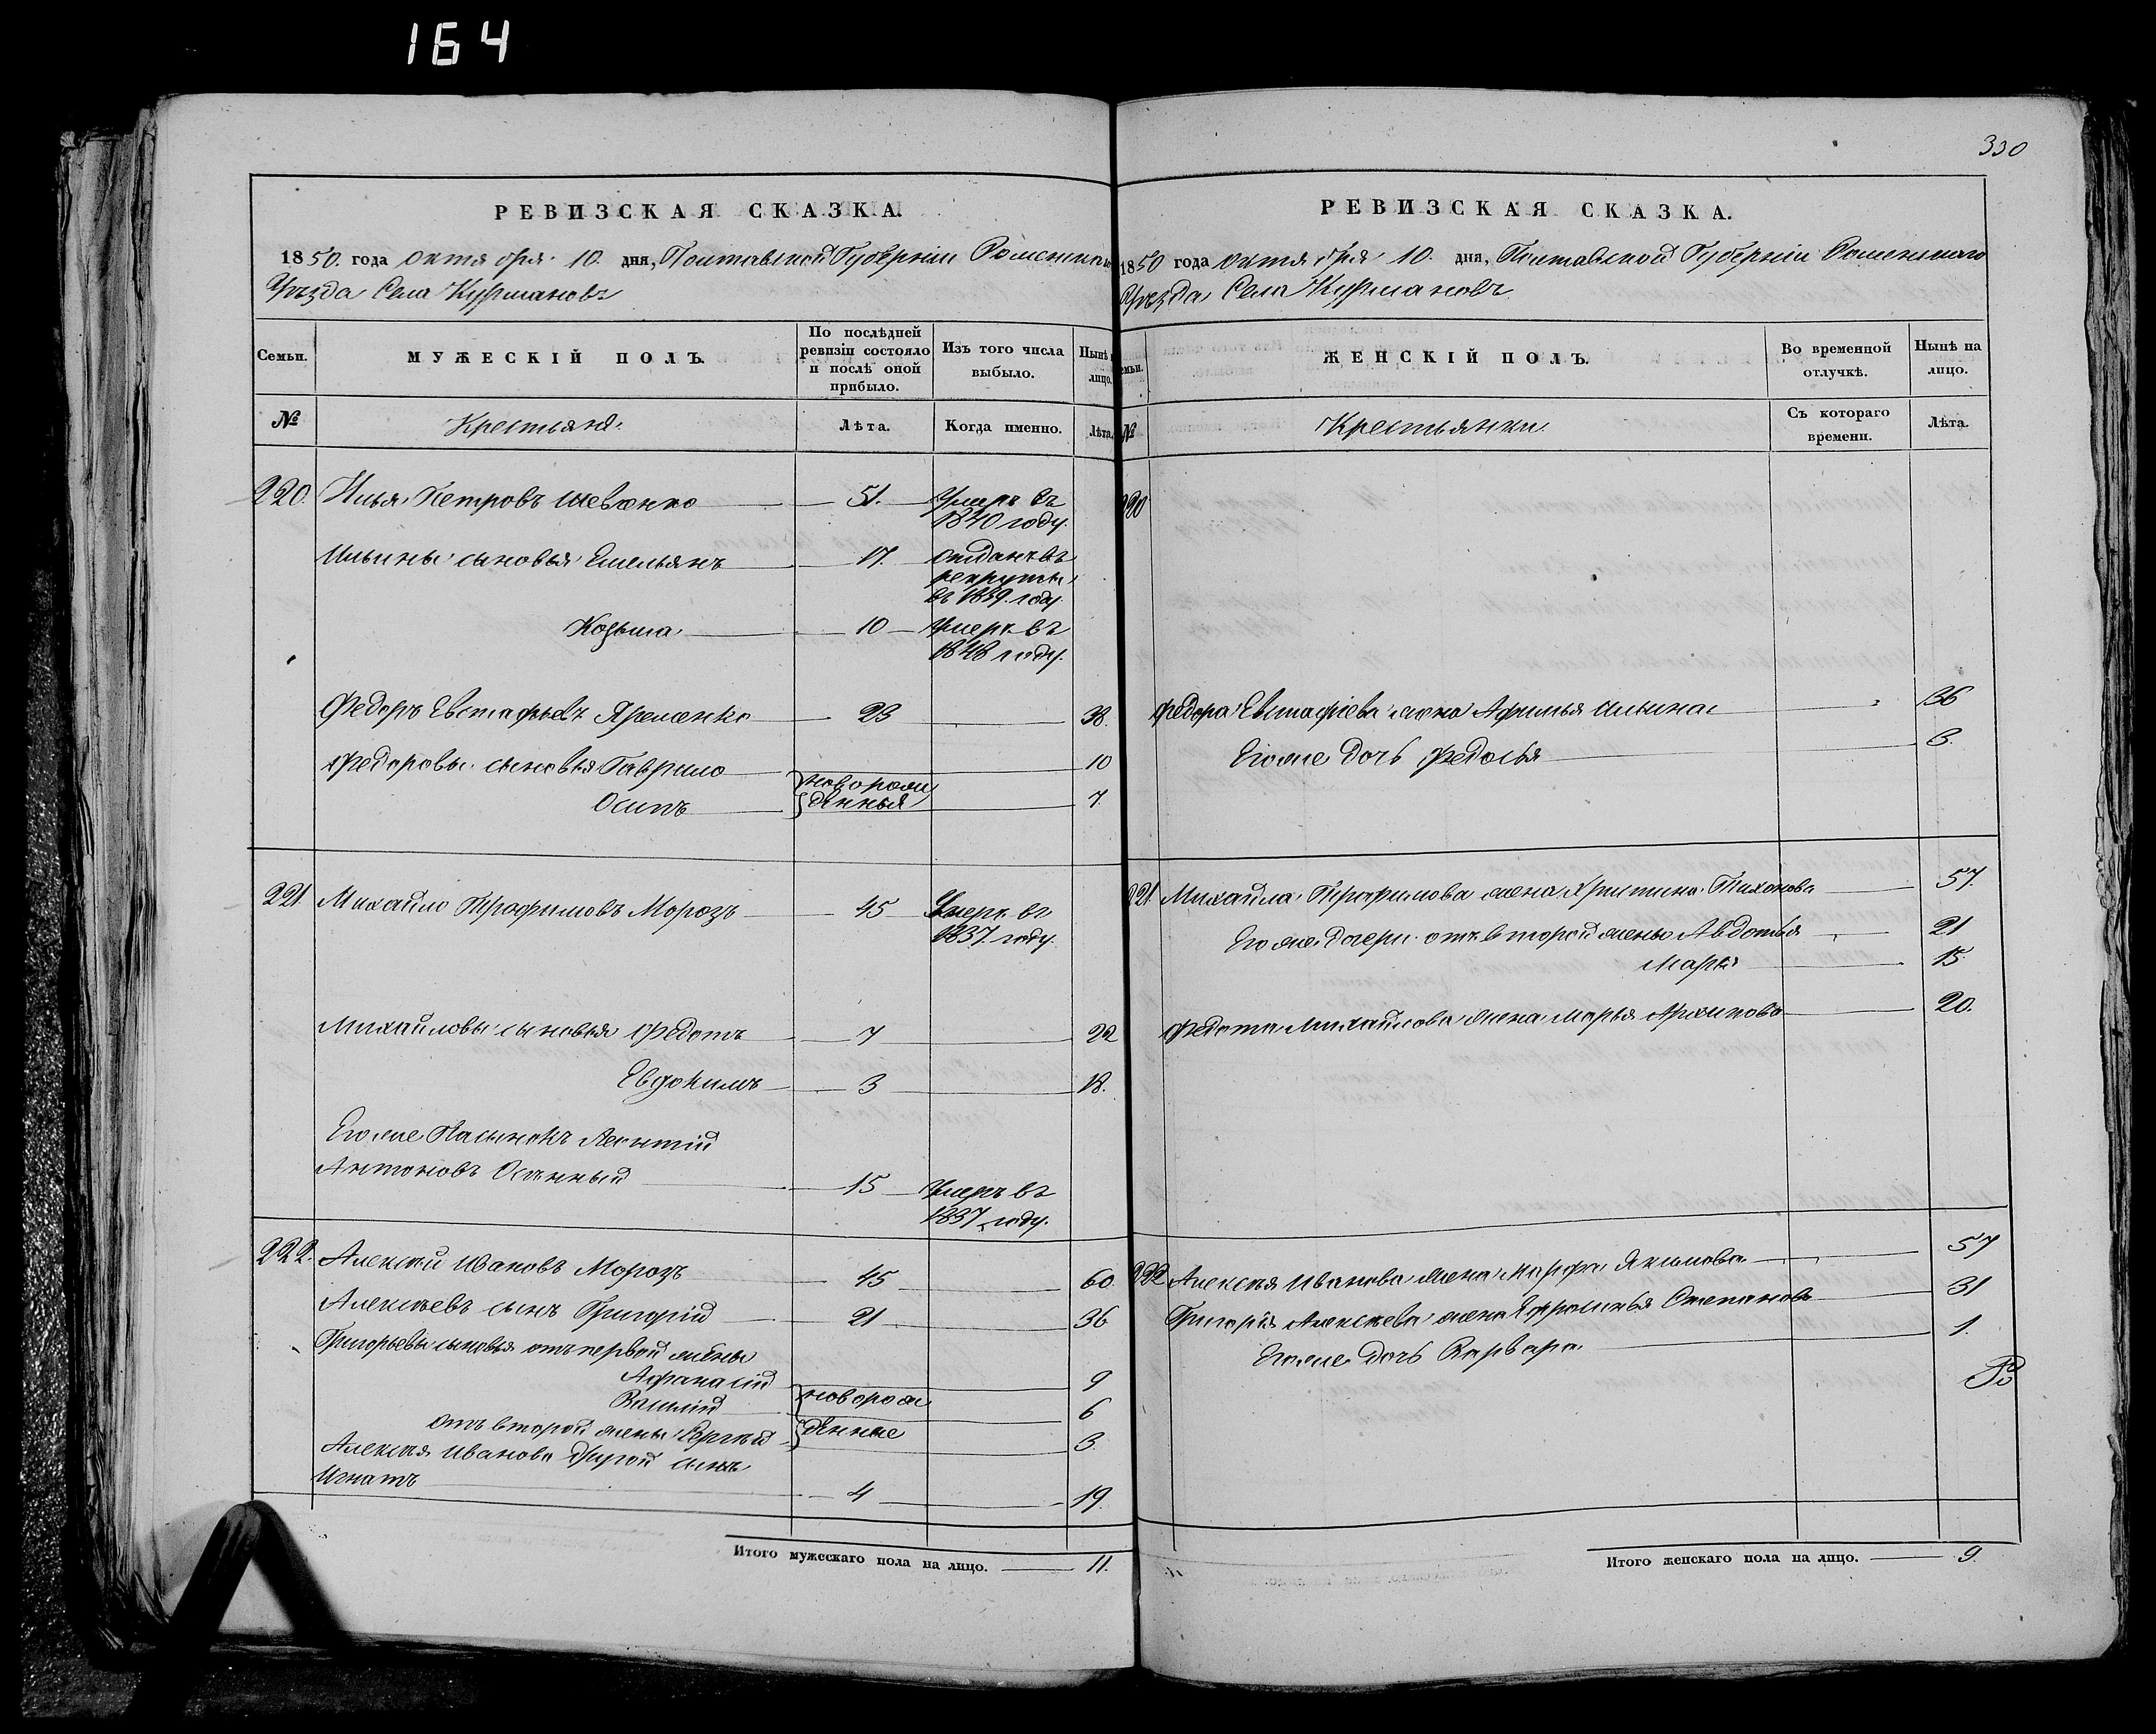 164
РЕВИЗСКАЯ СКАЗКА.
1850. года октября 10. дня, Полтавской Губерніи Роменскаго
Уѣзда Села Курмановъ
Семьи.
МУЖЕСКІЙ ПОЛЪ.
По послѣдней ревизіи состояло и послѣ оной прибыло.
Изъ того числа выбыло.
Нынѣ на лицо.
№
Крестьяне.
Лѣта.
Когда именно.
Лѣта.
220. Илья Петровъ Шевченко 51. Умеръ въ
1840 году.
Ильины сыновья Емельянъ 17. отданъ въ
рекруты
въ 1839. году.
Козьма 10 Умеръ въ
1848 году.
Федоръ Евстафьевъ Яременко 23 38.
Федоровы сыновья Гаврило 10
новорож
денныя
Осипъ 7.
221 Михайло Трофимовъ Морозъ 45 Умеръ въ
1837. году.
Михайловы сыновья Федотъ 7 22
Евдокимъ 3 18.
Его же Пасынокъ Леонтій
Антоновъ 15 Умеръ въ
1837 году.
222. Алексѣй Ивановъ Морозъ 45 60.
Алексѣевъ сынъ Григорій 21 36
Григорьевы сыновья отъ первой жены
Афанасій 9
новорож
Василій 6
денные
отъ второй жены Сергѣй 3
Алексѣя Иванова другой сынъ
Игнатъ 4 19.
Итого мужескаго пола на лицо. 11.
330
РЕВИЗСКАЯ СКАЗКА.
1850 года октября 10. дня, Полтавской Губерніи Роменскаго
Уѣзда Села Курмановъ.
Семьи.
ЖЕНСКІЙ ПОЛЪ.
Во временной отлучкѣ.
Нынѣ на лицо.
№
Крестьянки
Съ котораго времени.
Лѣта.
220
Федора Евстафіева жена Афимья Ильина 36
Его же дочь Федосья 3.
221 Михайла Трофимова жена Христина Тихонова 57.
Его же дочери отъ второй жены Авдотья 21
Марья 15.
Федота Михайлова жена Марья Архипова 20.
222 Алексѣя Иванова жена Марфа Якимова 57
Григорія Алексѣева жена Ефросинья Степанова 31
Его же дочь Варвара 1.
Итого женскаго пола на лицо. 9.